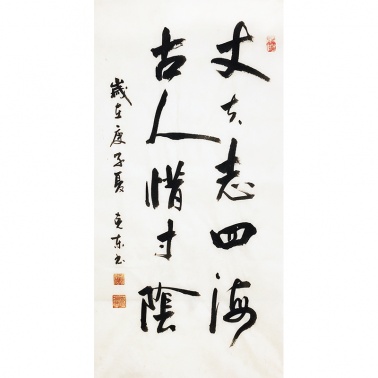 丈夫志四海
古人惜寸陰
歲在庚子夏
東书